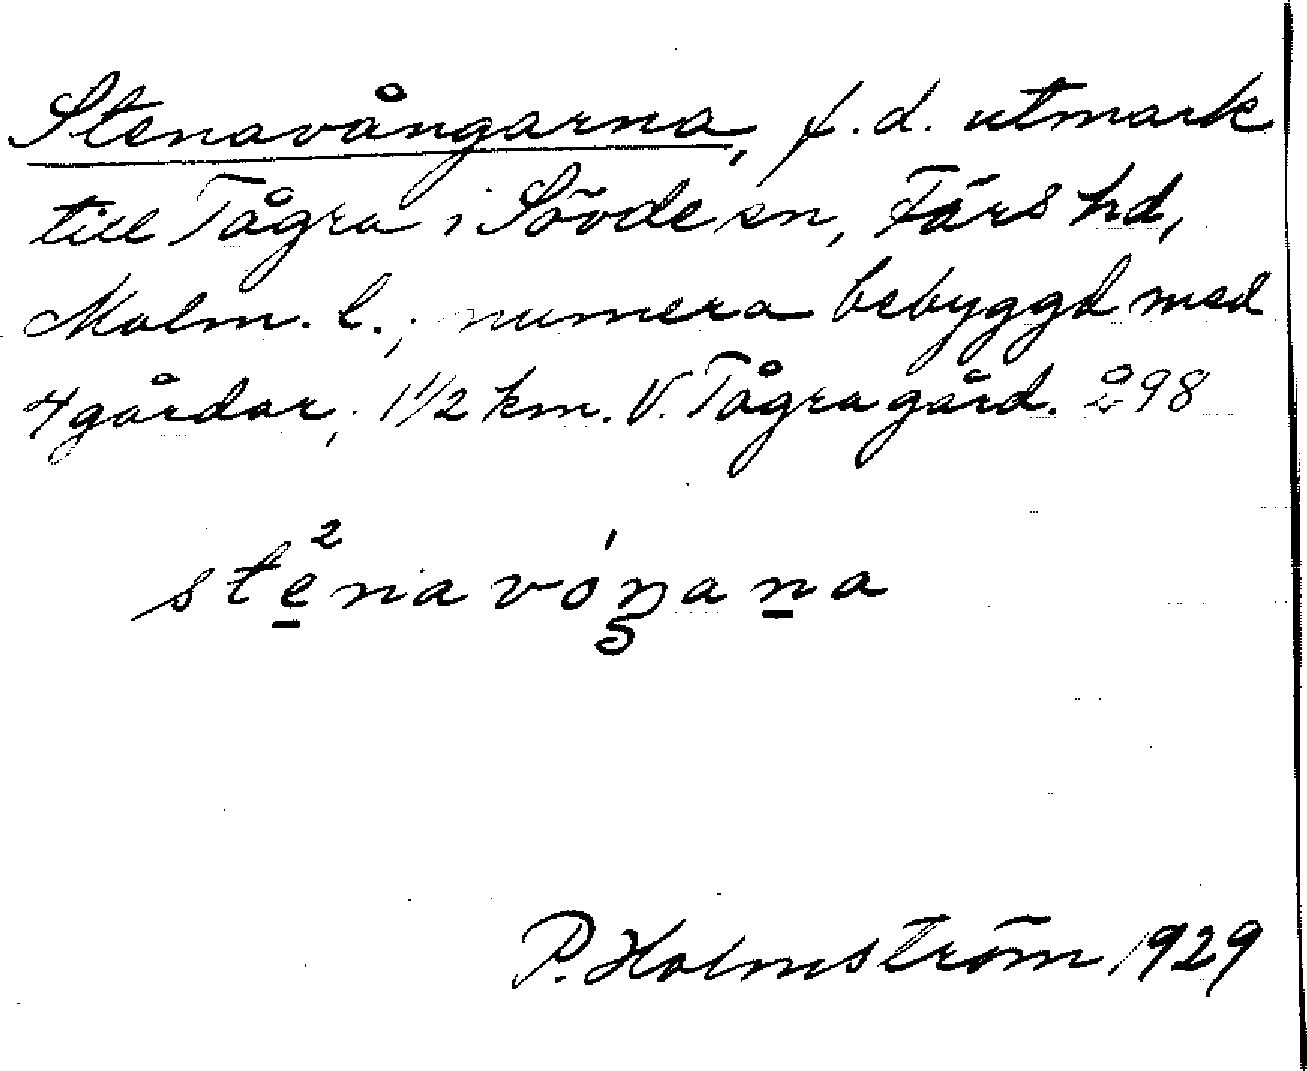 Stenavångarna, f.d. utmark
till Tågra i Sövde sn, Färs hd,
Malm. l., numera bebyggd med
4 gårdar, 1½ km. V. Tågra gård. å 98
stenavóŋana
P. Holmström 1929